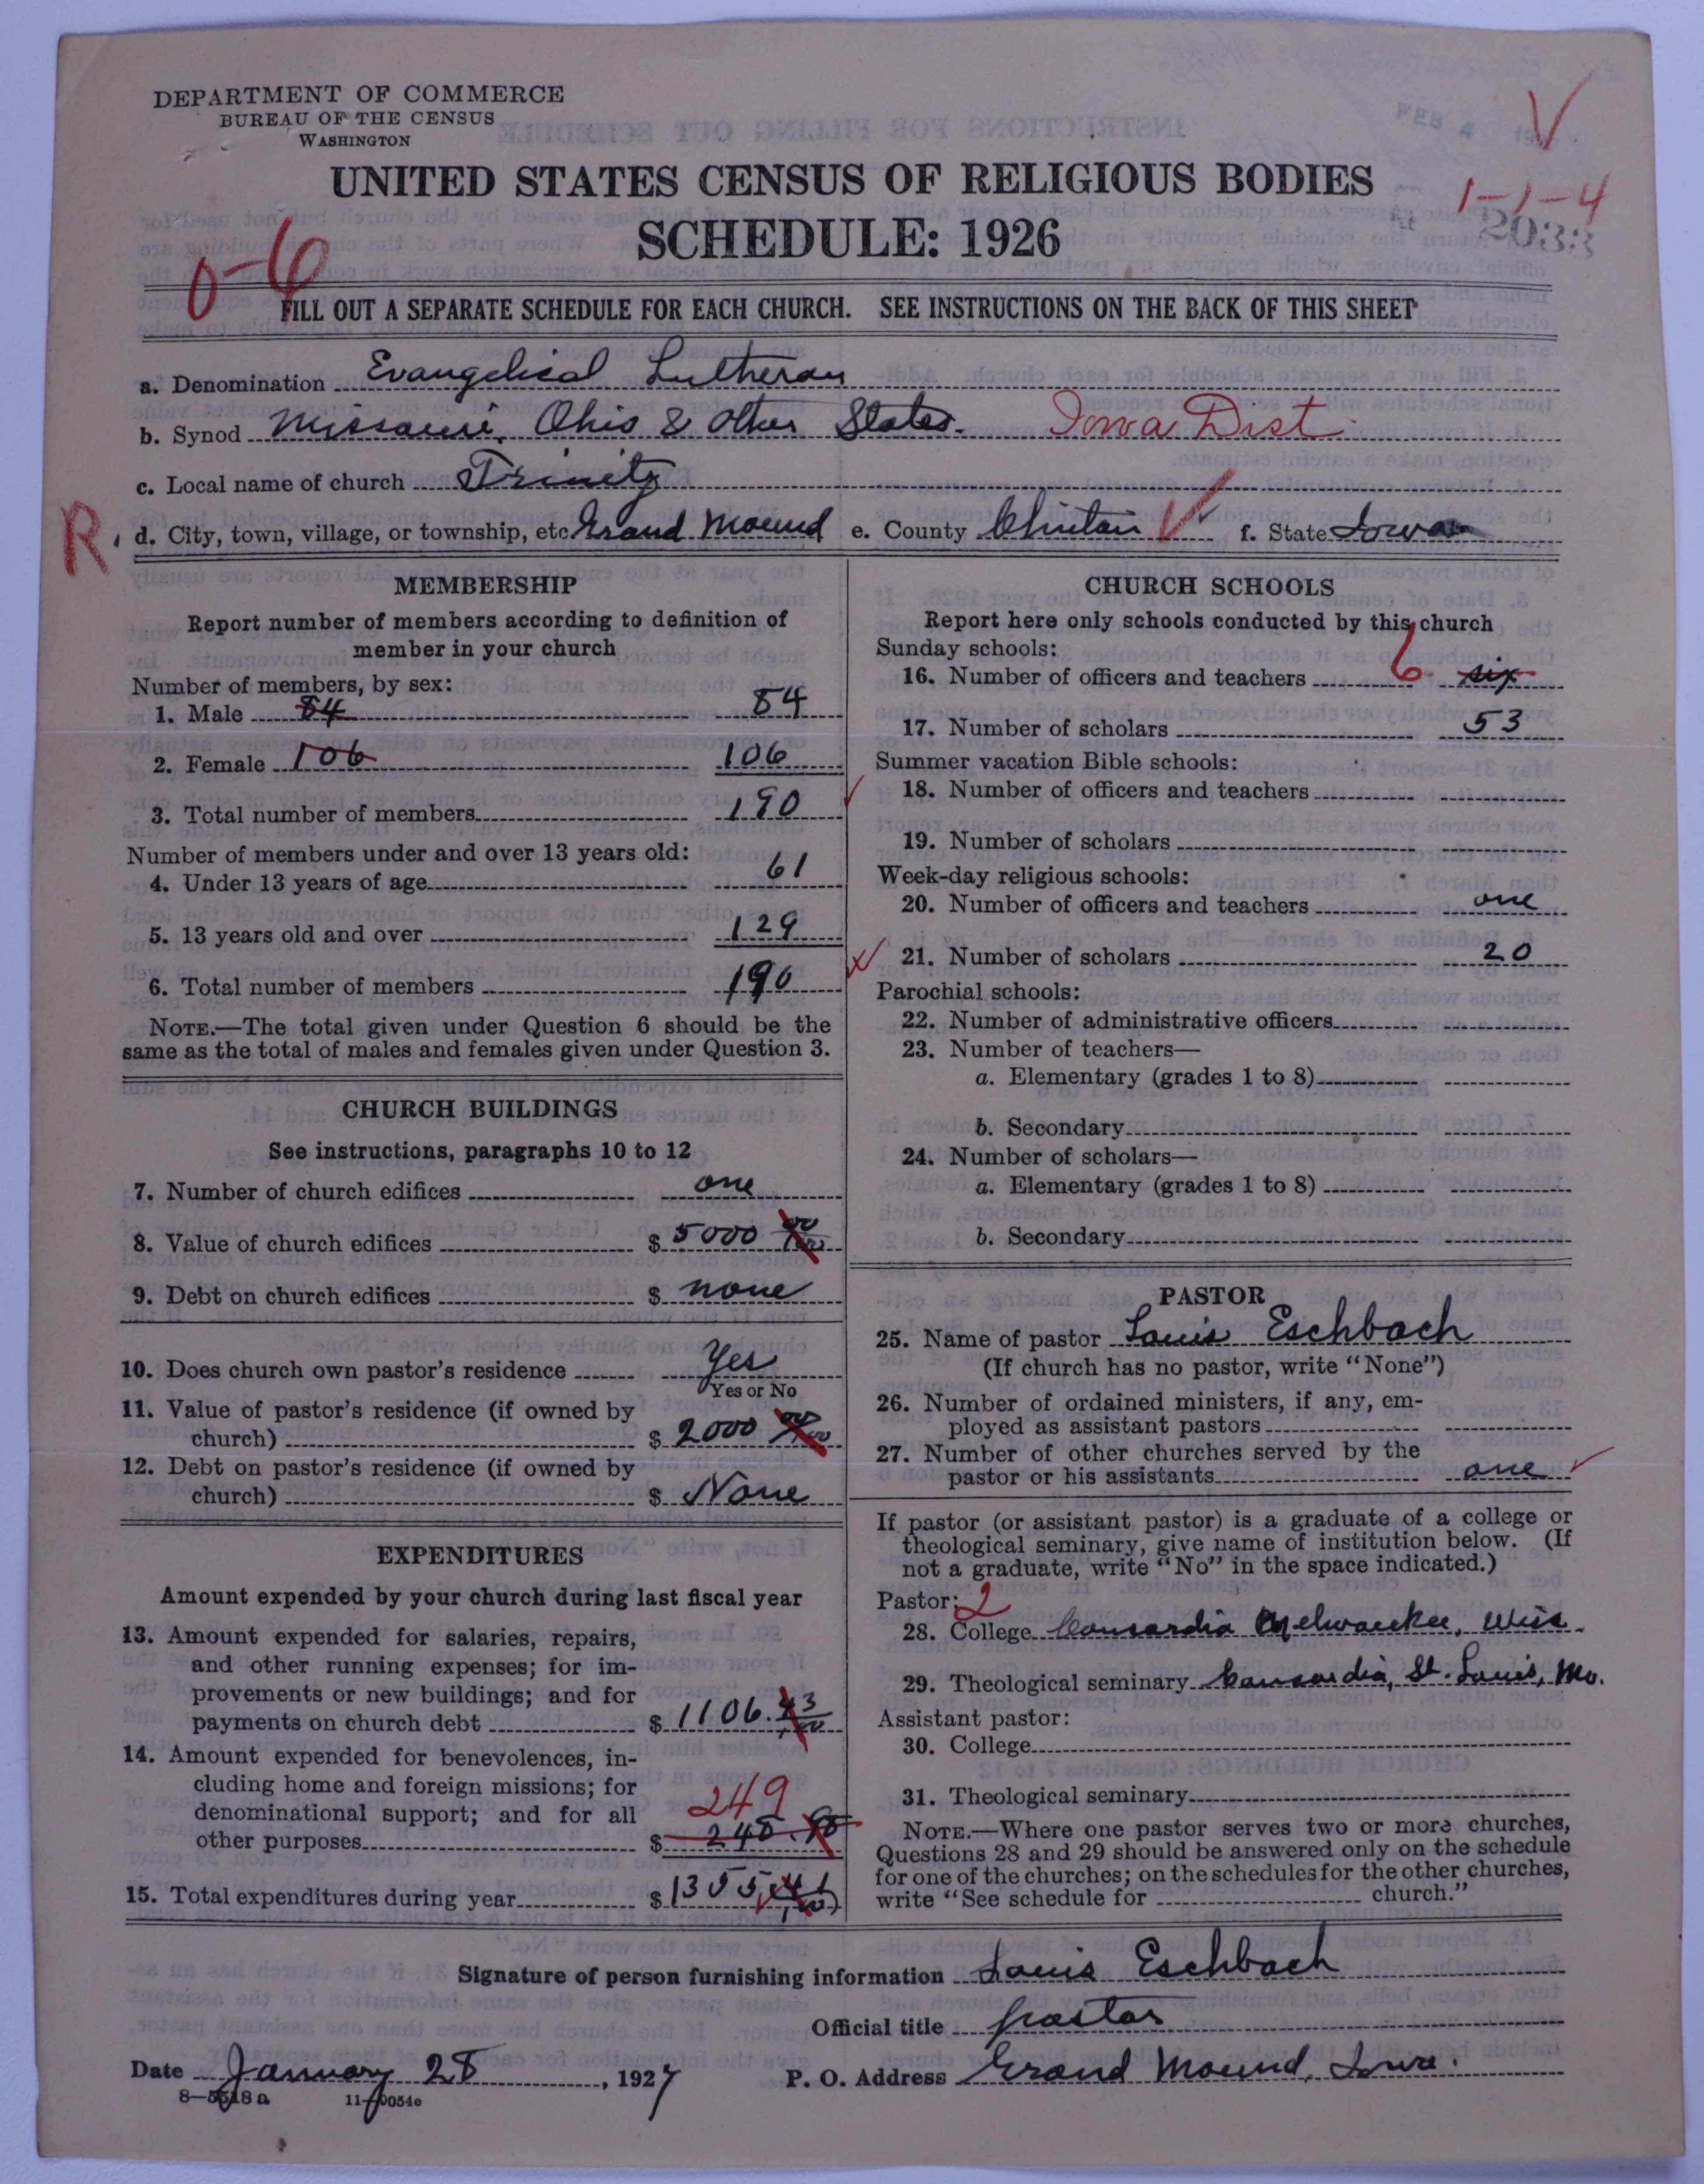 DEPARTMENT OF COMMERCE
BUREAU OF THE CENSUS
WASHINGTON
FEB 4
UNITED STATES CENSUS OF RELIGIOUS BODIES
1-1-4
SCHEDULE: 1926
2033
0-6
FILL OUT A SEPARATE SCHEDULE FOR EACH CHURCH. SEE INSTRUCTIONS ON THE BACK OF THIS SHEET
a. Denomination Evangelical Lutheran
b. Synod Missouri, Ohio & other States. Iowa Dist.
c. Local name of church Trinity
R. d. City, town, village, or township, etc Grand Mound e. County Clinton f. State Iowa
MEMBERSHIP
Report number of members according to definition of
member in your church
Number of members, by sex:
1. Male 84 84
2. Female 106 106
3. Total number of members 190
Number of members under and over 13 years old:
4. Under 13 years of age 61
5. 13 years old and over 129
6. Total number of members 190
NOTE.—The total given under Question 6 should be the
same as the total of males and females given under Question 3.
CHURCH BUILDINGS
See instructions, paragraphs 10 to 12
7. Number of church edifices one
8. Value of church edifices $ 5000 00/100
9. Debt on church edifices $ none
10. Does church own pastor's residence Yes
Yes or No
11. Value of pastor's residence (if owned by
church) $ 2000 00/100
12. Debt on pastor's residence (if owned by
church) $ None
EXPENDITURES
Amount expended by your church during last fiscal year
13. Amount expended for salaries, repairs,
and other running expenses; for im-
provements or new buildings; and for
payments on church debt $ 1106. 43/100
14. Amount expended for benevolences, in-
cluding home and foreign missions; for
denominational support; and for all 249
other purposes $ 248.98
15. Total expenditures during year $ 1355.41/100
CHURCH SCHOOLS
Report here only schools conducted by this church
Sunday schools:
16. Number of officers and teachers 6 six
17. Number of scholars 53
Summer vacation Bible schools:
18. Number of officers and teachers
19. Number of scholars
Week-day religious schools:
20. Number of officers and teachers one
21. Number of scholars 20
Parochial schools:
22. Number of administrative officers
23. Number of teachers—
a. Elementary (grades 1 to 8)
b. Secondary
24. Number of scholars—
a. Elementary (grades 1 to 8)
b. Secondary
PASTOR
25. Name of pastor Louis Eschbach
(If church has no pastor, write "None")
26. Number of ordained ministers, if any, em-
ployed as assistant pastors
27. Number of other churches served by the
pastor or his assistants one
If pastor (or assistant pastor) is a graduate of a college or
theological seminary, give name of institution below. (If
not a graduate, write "No" in the space indicated.)
Pastor: 2
28. College Concordia Milwaukee, Wis.
29. Theological seminary Concordia, St. Louis, Mo.
Assistant pastor:
30. College
31. Theological seminary
NOTE.—Where one pastor serves two or more churches,
Questions 28 and 29 should be answered only on the schedule
for one of the churches; on the schedules for the other churches,
write "See schedule for church."
Signature of person furnishing information Louis Eschbach
Official title pastor
Date January 28, 1927 P. O. Address Grand Mound, Iowa.
8—5618 a